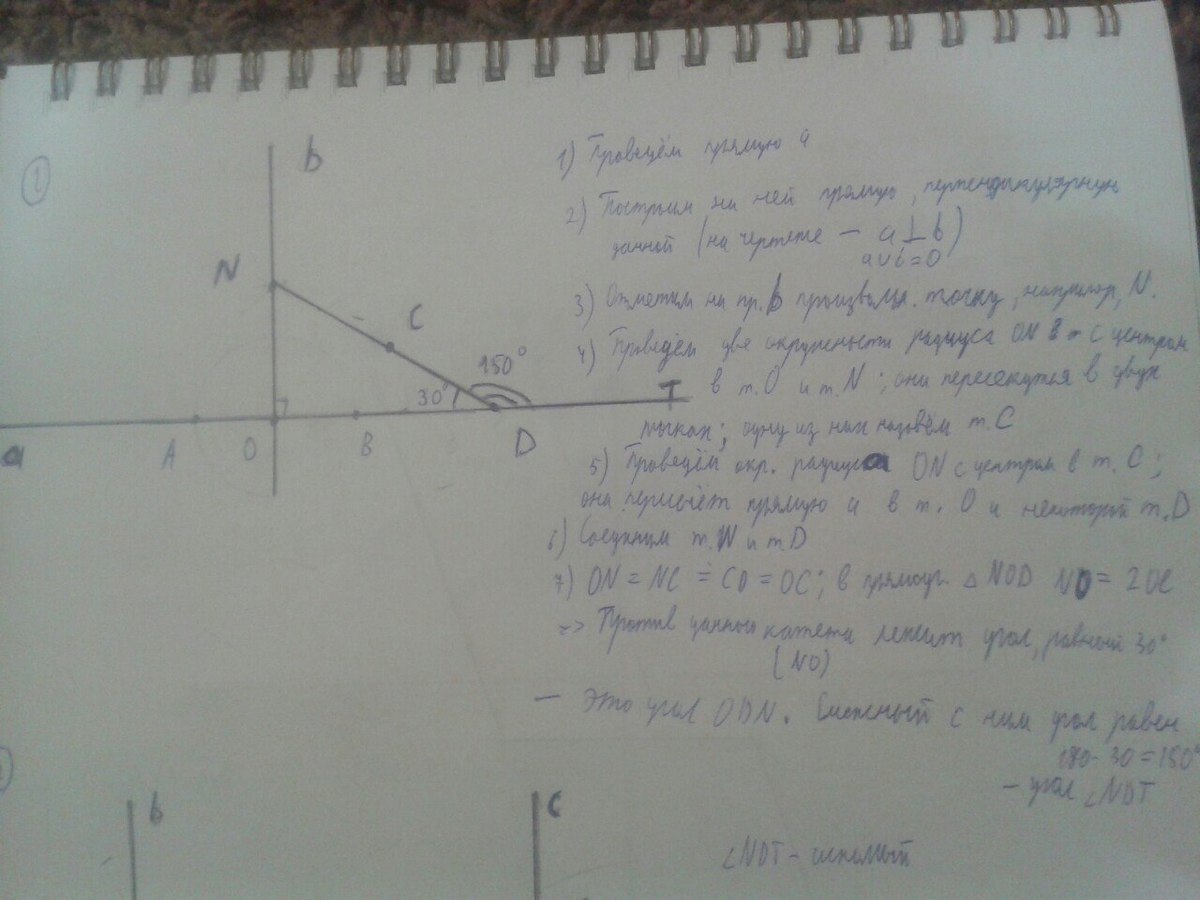 1
b
N
C
150°
30°
T
a
A
O
B
D
1) Проведём прямую a
2) Построим на ней прямую, перпендикулярную
данной (на чертеже — a⊥b)
a∪b=O
3) Отметим на пр. b произвольн. точку, например, N.
4) Проведём две окружности радиуса ON с центром
в т. O и т. N; они пересекутся в двух
точках; одну из них назовём т. C
5) Проведём окр. радиуса ON с центром в т. C;
она пересечёт прямую a в т. O и некоторой т. D
6) Соединим т. N и т. D
7) ON = NC = CD = OC; в прямоуг. △ NOD ND = 2OC
=> Против данного катета лежит угол, равный 30°
(NO)
— Это угол ODN. Смежный с ним угол равен
180-30=150°
— угол ∠NDT
∠NDT - искомый
b
C